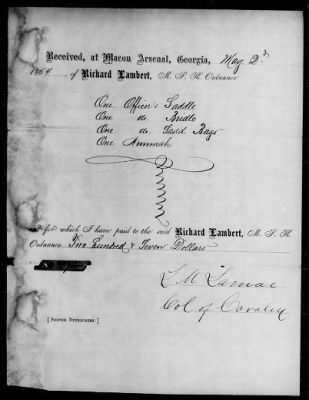 Received, at Macon Arsenal, Georgia, May 2d
1864, of Richard Lambert, M. S. K. Ordnance
One Officer's Saddle
One do. Bridle
One do. Sadd Bags
One
for which I have paid to the said Richard Lambert, M. S. K.
Ordnance, Two Hundred & Seven Dollars
L M Lamar
Col of Cavalry
[SIGNED DUPLICATES.]